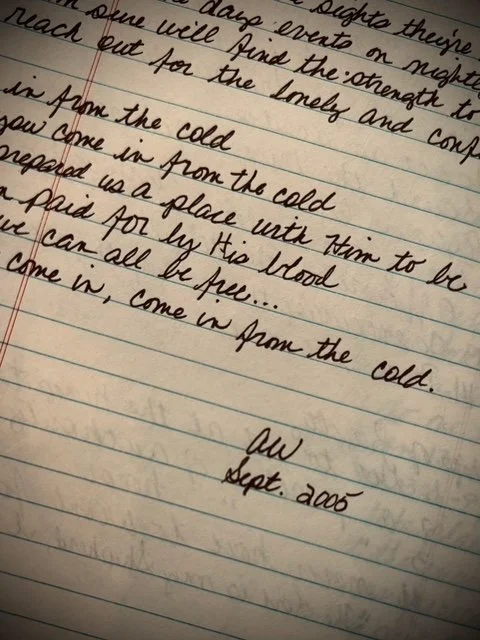 sights they're
days events on nightly
sure will find the strength to
reach out for the lonely and
in from the cold
you come in from the cold
prepared us a place with Him to be
paid for by His blood
we can all be free...
come in, come in from the cold.
aw
Sept. 2005